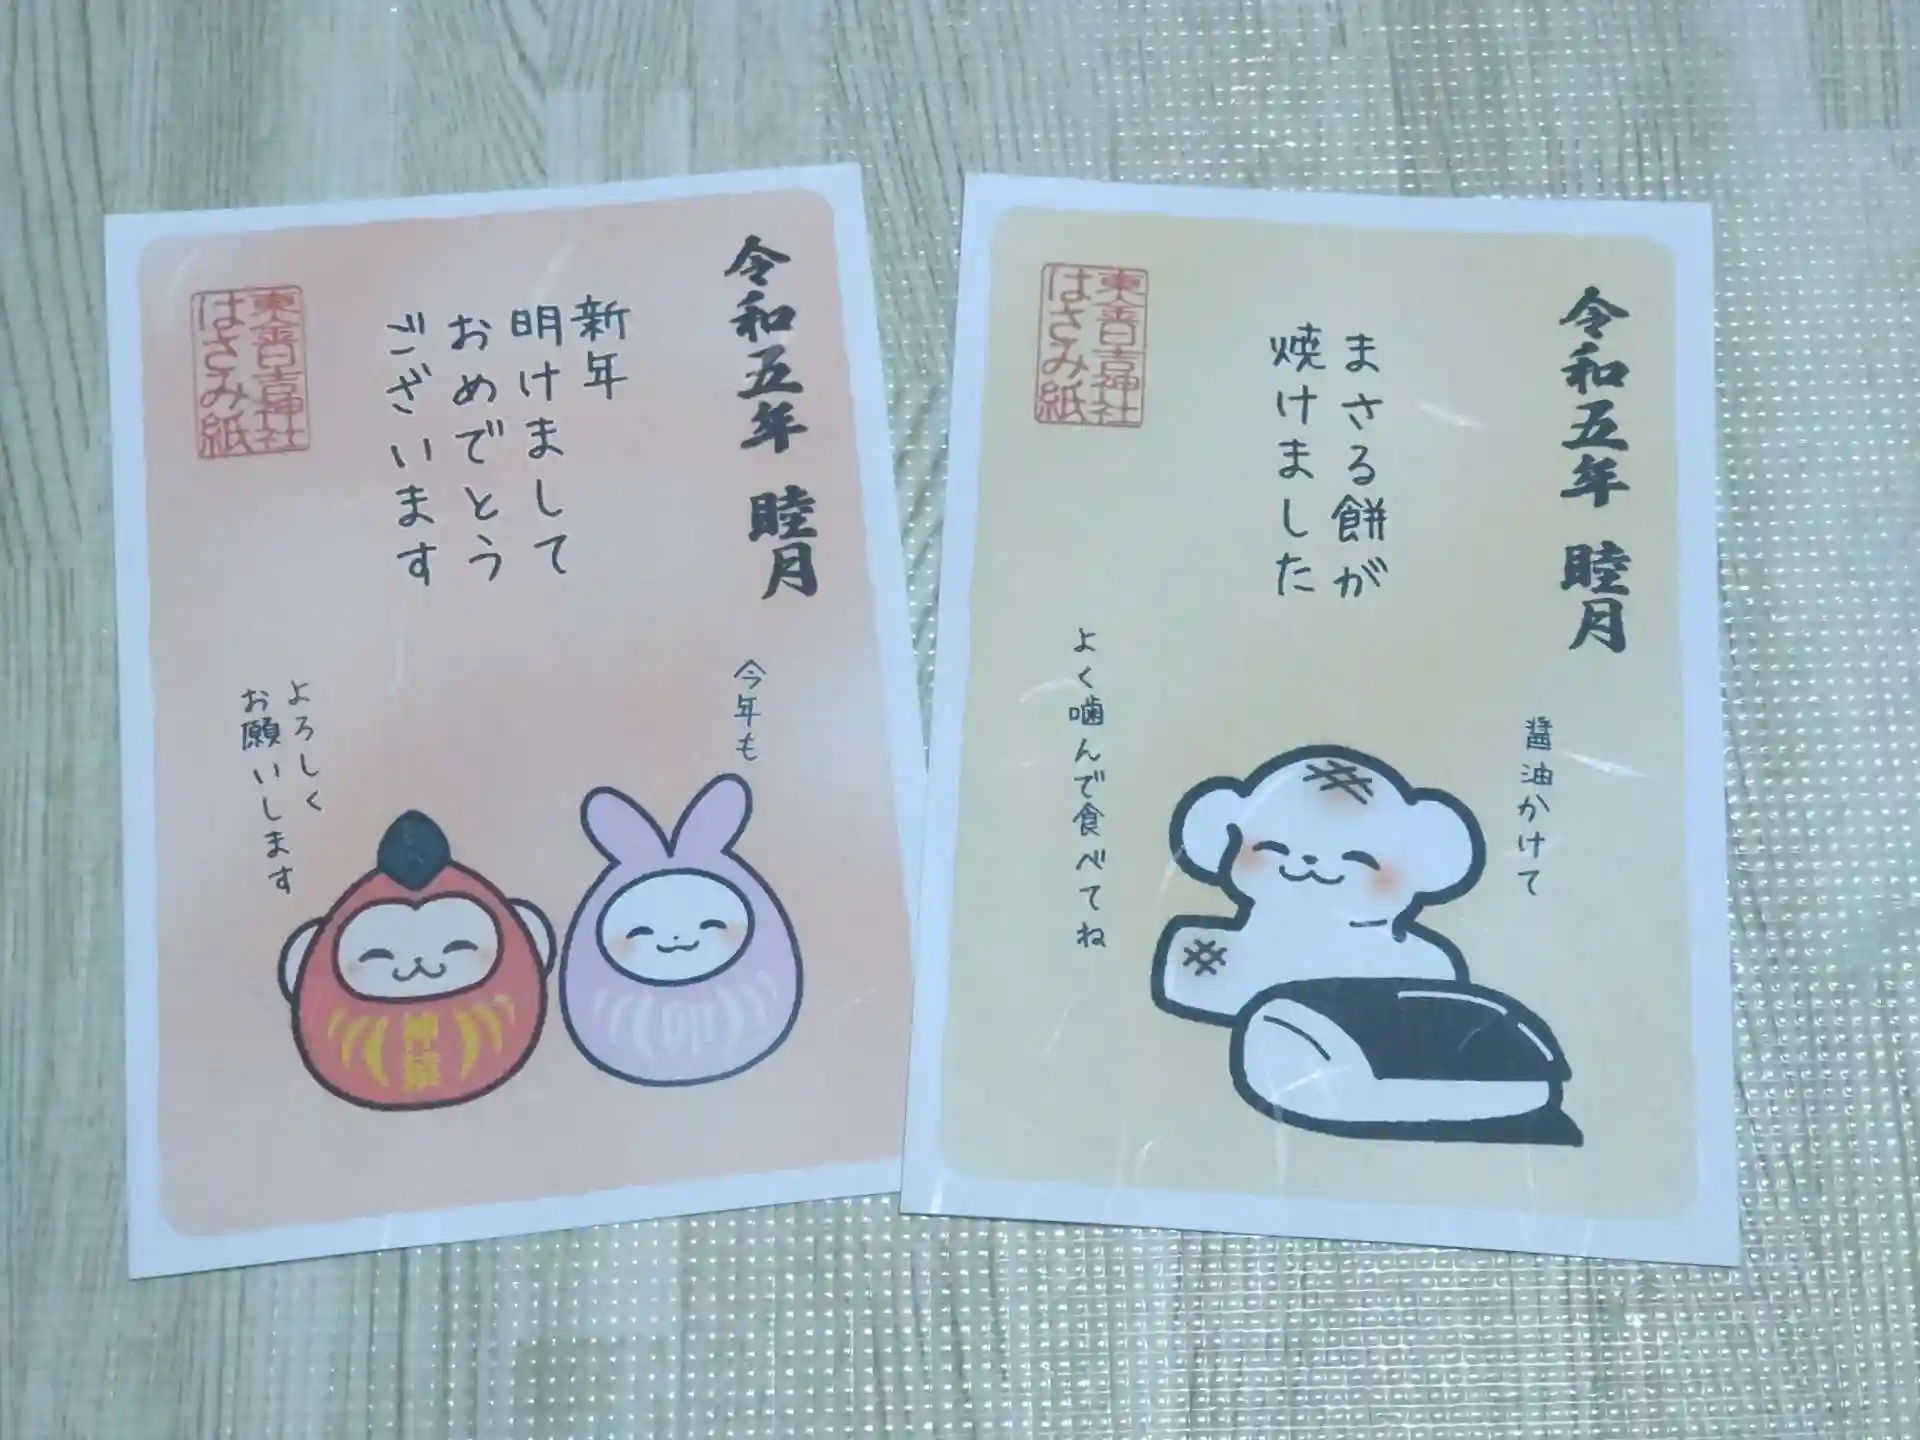 令和五年 睦月
新年
明けまして
おめでとう
ございます
東金日吉神社
はさみ紙
今年も
よろしく
お願いします
卯
神猿
令和五年 睦月
まさる餅が
焼けました
東金日吉神社
はさみ紙
醤油かけて
よく噛んで食べてね